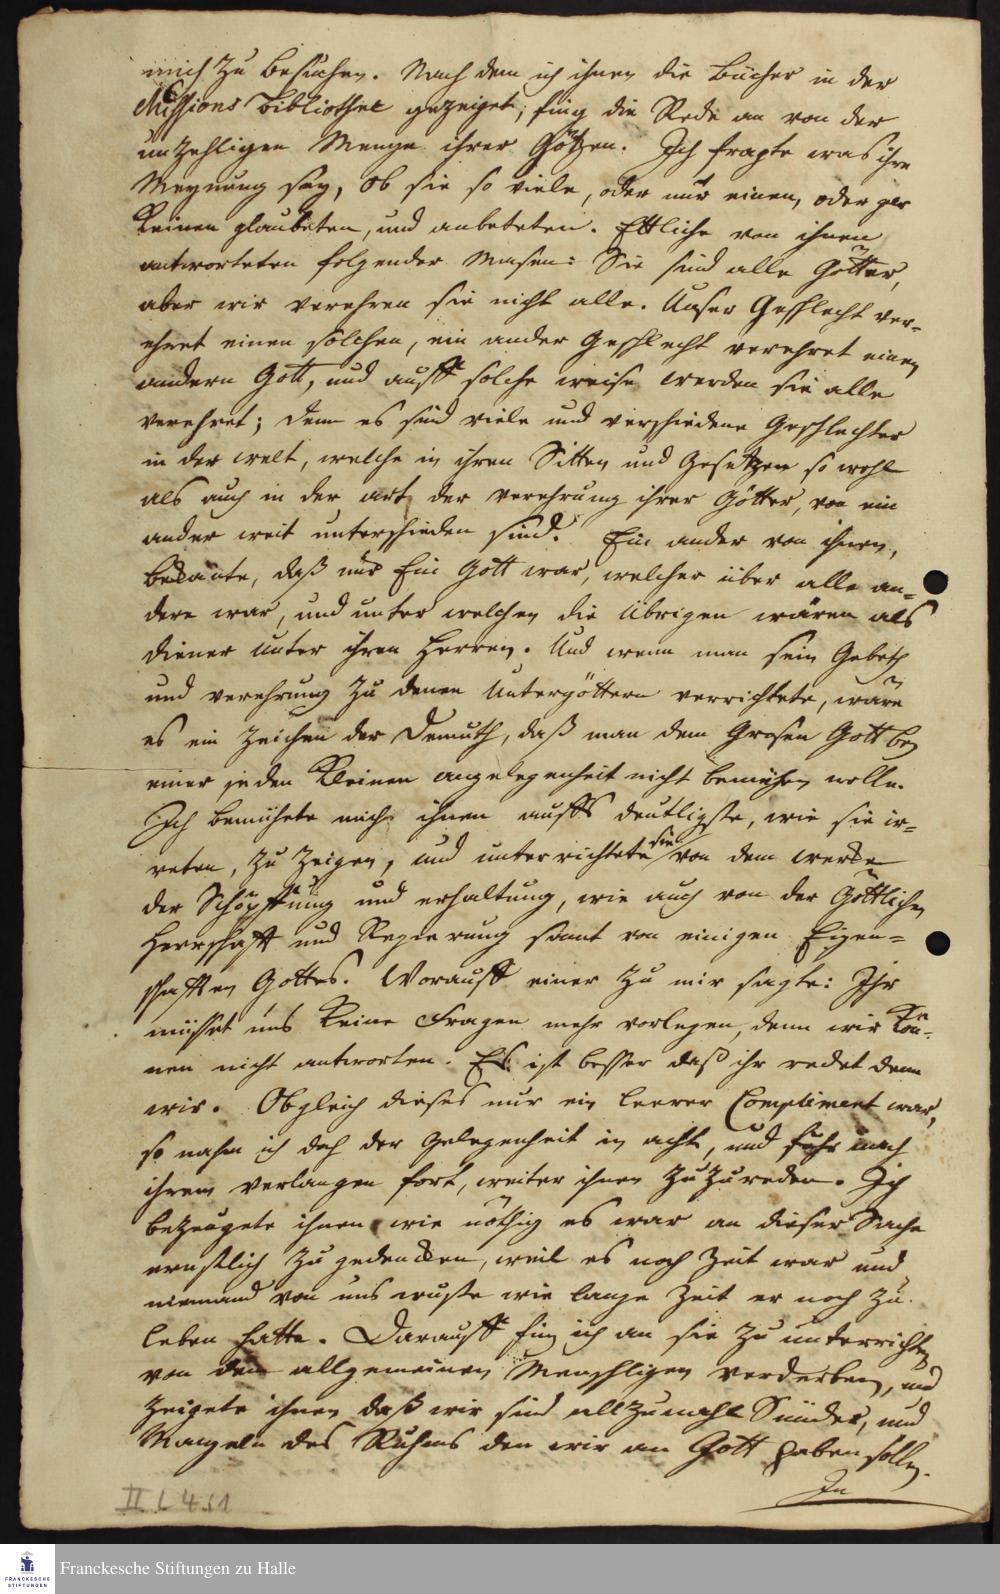 mich zu besuchen. Nach dem ich ihnen die Bücher in der
Missions Bibliothec gezeiget, fing die Rede an von der
unzehligen Menge ihrer Götzen. Ich fragte was ihre
Meynung sey, ob sie so viele, oder nur einen, oder gar
keinen glaubeten, und anbeteten. Ettliche von ihnen
antworteten folgender masen: Sie sind alle Götter,
aber wir verehren sie nicht alle. Unser Geschlecht ver-
ehret einen solchen, ein ander Geschlecht verehret einen
andern Gott, und auff solche weise werden sie alle
verehret; denn es sind viele und verschiedene Geschlechter
in der welt, welche in ihren Sitten und Gesetzen so wohl
als auch in der art der verehrung ihrer Götter, von ein
ander weit unterschieden sind. Ein ander von ihnen,
bekante, daß nur Ein Gott war, welcher über alle an-
dere war, und unter welchen die Übrigen wären als
diener unter ihren Herren. Und wenn man sein Gebeth
und verehrung zu denen Untergöttern verrichtete, wäre
es ein zeichen der Demuth, daß man dem Grosen Gott bey
einer jeden kleinen angelegenheit nicht bemühen wolle.
Ich bemühete mich ihnen auffs deutligste, wie sie ir-
reten, zu zeigen, und unterrichtete sie von dem wercke
der Schöpffung und erhaltung, wie auch von der Göttlichen
Herrschafft und Regierung samt von einigen Eigen-
schafften Gottes. Worauff einer zu mir sagte: Ihr
müsset uns keine Fragen mehr vorlegen, denn wir kön-
nen nicht antworten. Es ist besser daß ihr redet denn
wir. Obgleich dieses nur ein leerer Compliment war,
so nahm ich doch der gelegenheit in acht, und fuhr nach
ihrem verlangen fort, weiter ihnen zuzureden. Ich
bezeugete ihnen wie nöthig es war an dieser Sache
ernstlich zu gedencken, weil es noch Zeit war und
niemand von uns wuste wie lange Zeit er noch zu
leben hatte. Darauff fing ich an sie zu unterrichten
von dem allgemeinen Menschligen verderben, und
zeigete ihnen daß wir sind allzumahl Sünder, und
Mangeln des Ruhms den wir an Gott haben sollen.
In
II L 4 51
Franckesche Stiftungen zu Halle
FRANCKESCHE
STIFTUNGEN